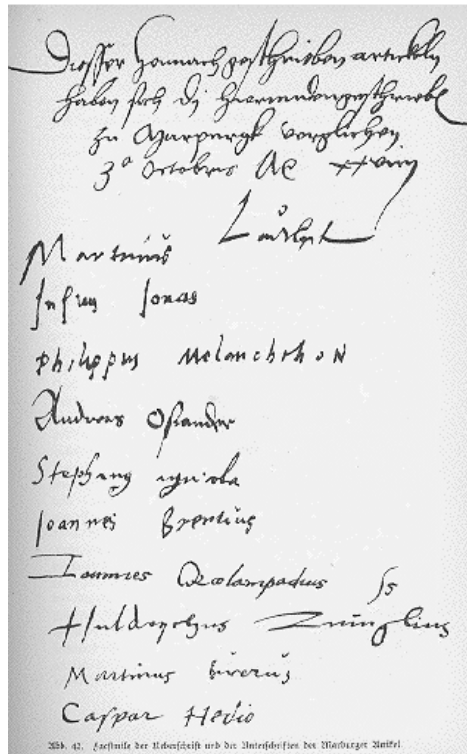 Dysser hernach geschriben artickeln
haben sich di hierundengeschriebē
zu Marpurgk verglichen
3ª octobris
Martinus Luther
Jonas
Philippus Melanchthon
Andreas Osiander
Stephanus Agricola
Joannes Brentius
Ioannes Oecolampadius ss
Huldrychus Zuinglius
Martinus Bucerus
Caspar Hedio
Abb. 42. Facsimile der Ueberschrift und der Unterschriften der Marburger Artikel